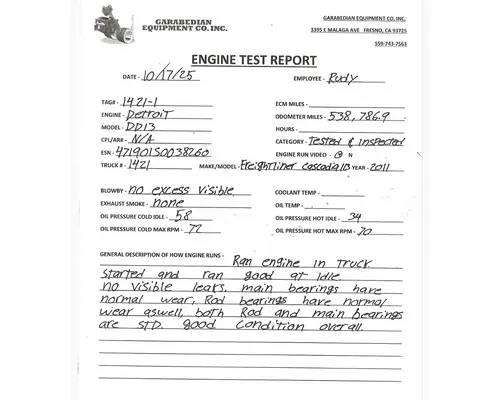 GARABEDIAN
EQUIPMENT CO. INC.
GARABEDIAN EQUIPMENT CO, INC.
3395 E MALAGA AVE FRESNO, CA 93725
559-743-7563
ENGINE TEST REPORT
DATE - 10/17/25 EMPLOYEE - Rudy
TAG# - 1421-1 ECM MILES -
ENGINE - Detroit ODOMETER MILES - 538,786.9
MODEL - DD13 HOURS -
CPL/AR# - N/A CATEGORY - Tested & Inspected
ESN - 471901S0038260 ENGINE RUN VIDEO - Y N
TRUCK # - 1421 MAKE/MODEL - Freightliner cascadia113 YEAR - 2011
BLOWBY - no excess visible COOLANT TEMP -
EXHAUST SMOKE - none OIL TEMP -
OIL PRESSURE COLD IDLE - 58 OIL PRESSURE HOT IDLE - 34
OIL PRESSURE COLD MAX RPM - 72 OIL PRESSURE HOT MAX RPM - 70
GENERAL DESCRIPTION OF HOW ENGINE RUNS - Ran engine in truck
started and ran good at idle.
no visible leaks. main bearings have
normal wear, Rod bearings have normal
wear aswell, both Rod and main bearings
are STD. good condition overall.